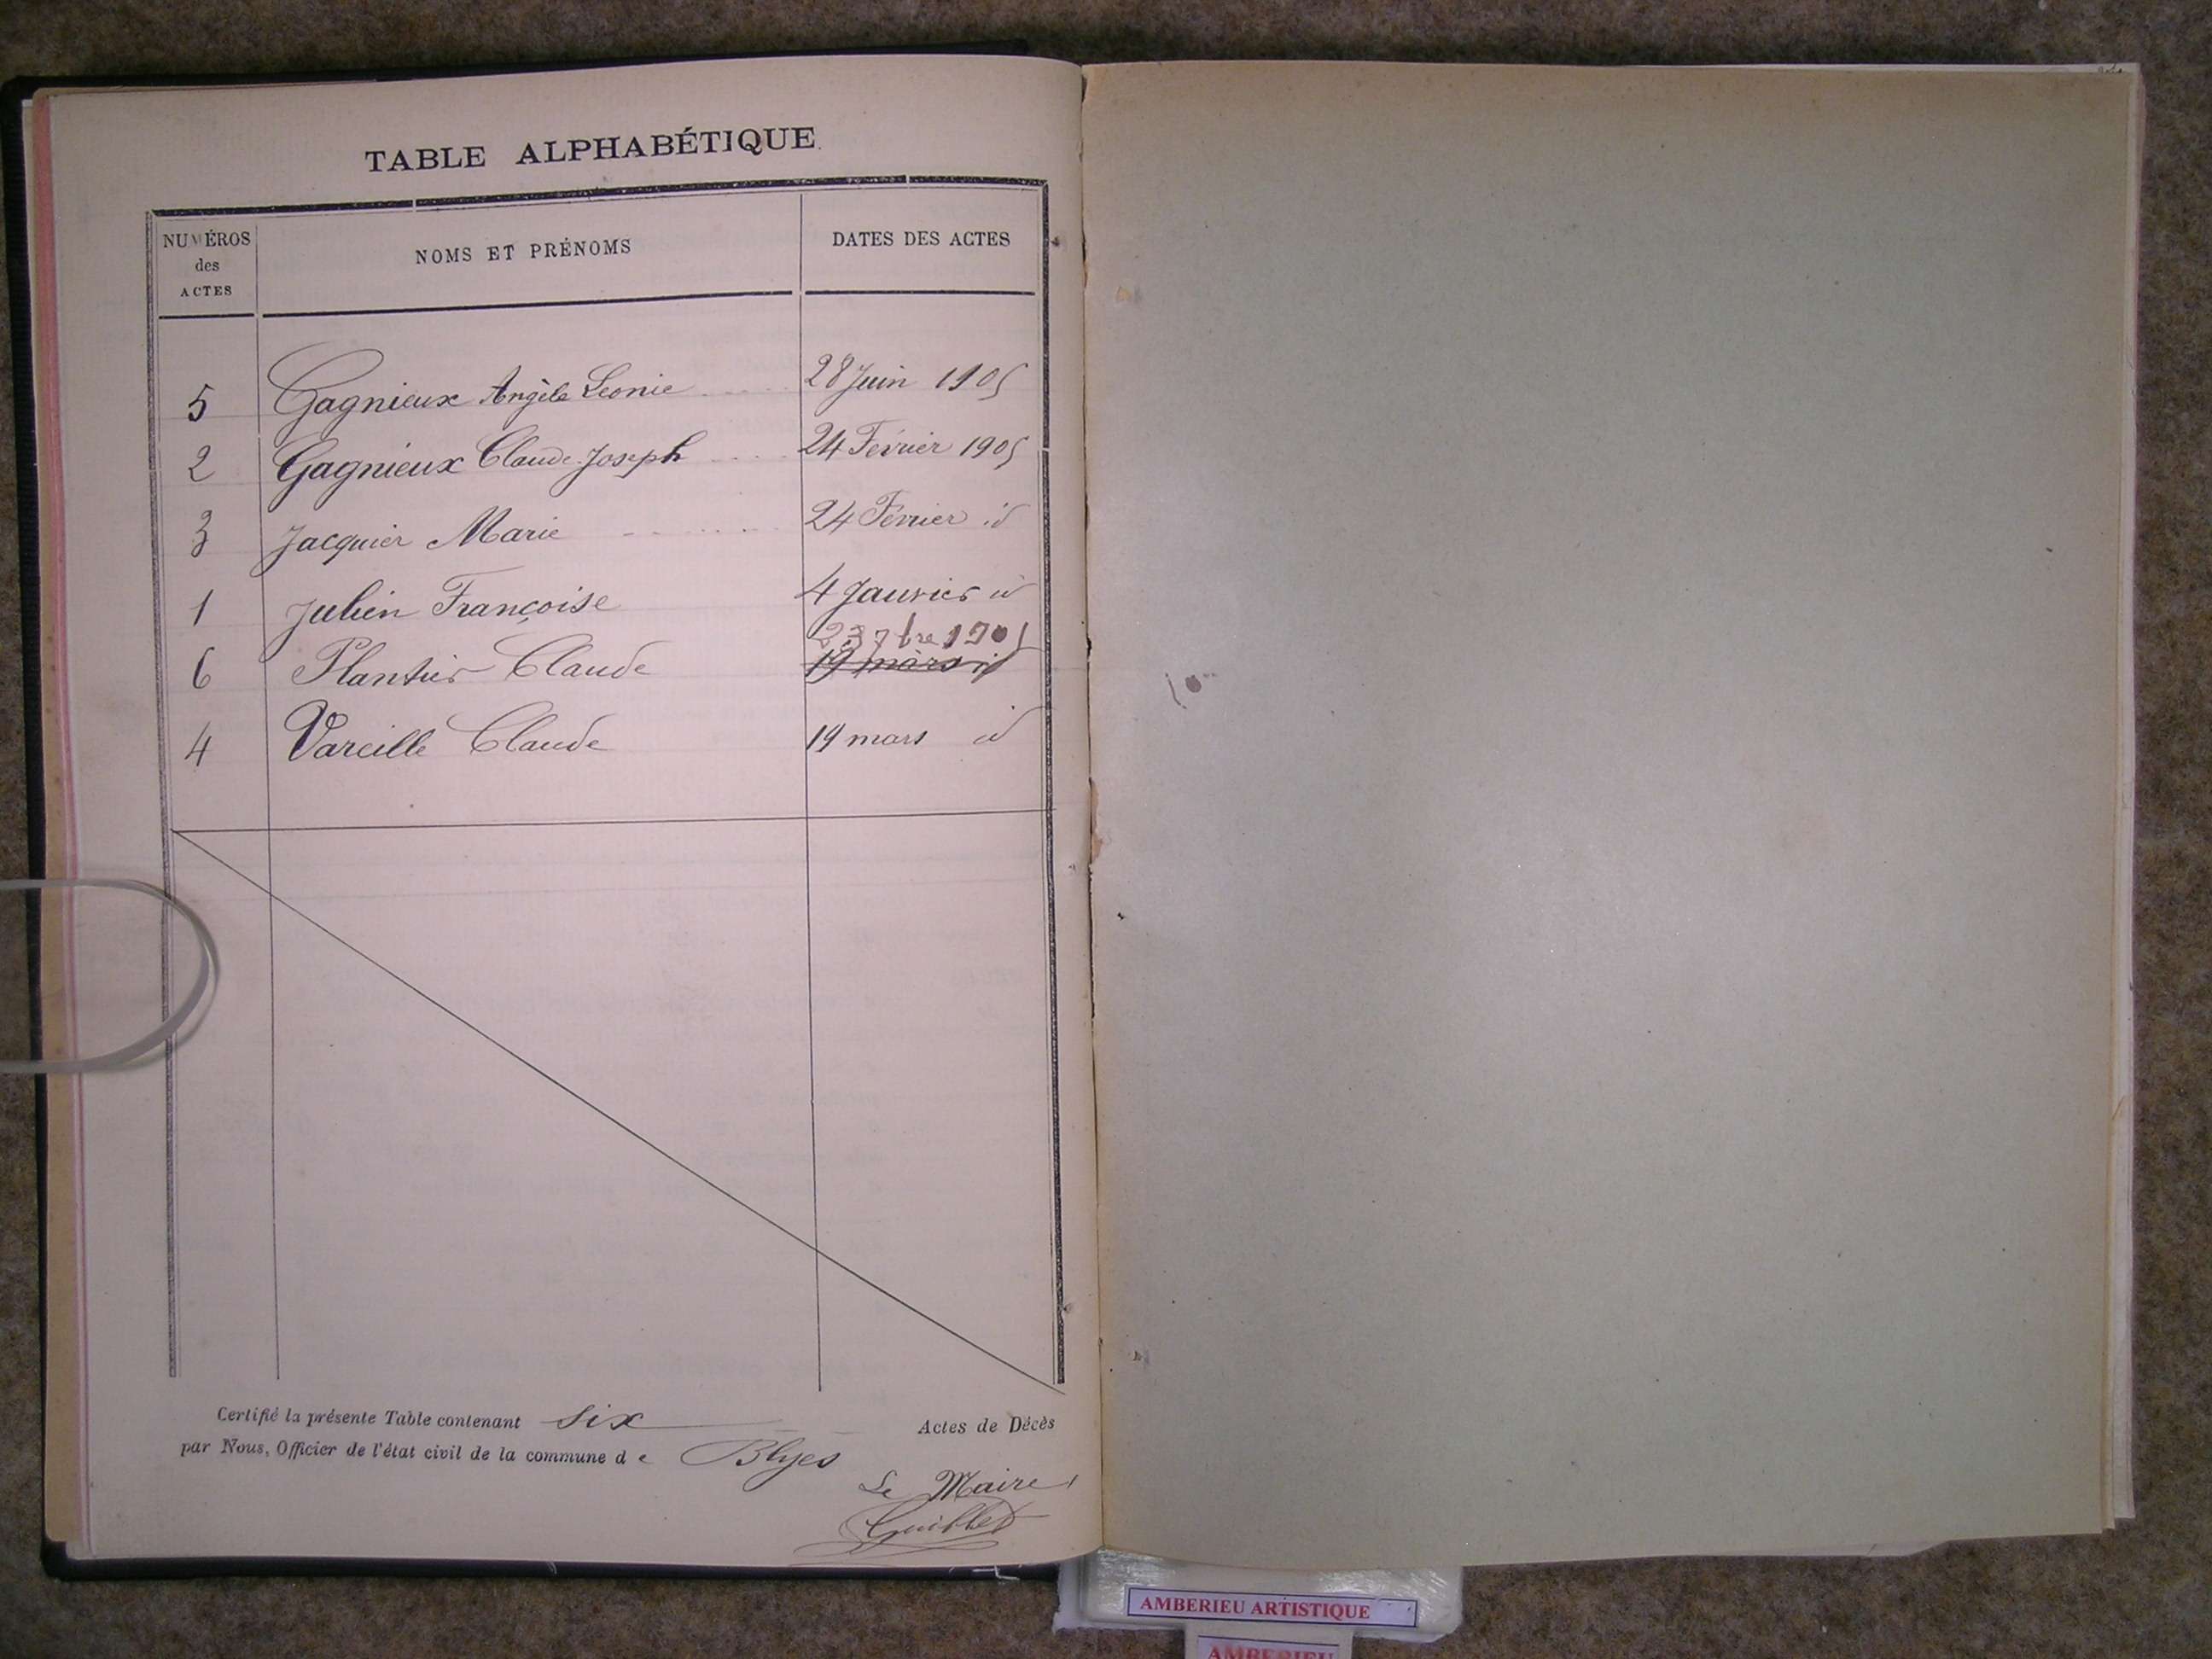 TABLE ALPHABÉTIQUE
NUMÉROS des ACTES NOMS ET PRÉNOMS DATES DES ACTES
5 Gagnieux Angèle Leonie 28 Juin 1905
2 Gagnieux Claude Joseph 24 Février 1905
3 Jacquier Marie 24 Février id
1 Julien Françoise 4 Janvier id
23 7bre 1905
6 Plantier Claude 19 mars id
4 Vareille Claude 19 mars id
Certifié la présente Table contenant six Actes de Décès
par Nous, Officier de l'état civil de la commune de Blyes
Le Maire
Guillet
AMBERIEU ARTISTIQUE
AMBERIEU